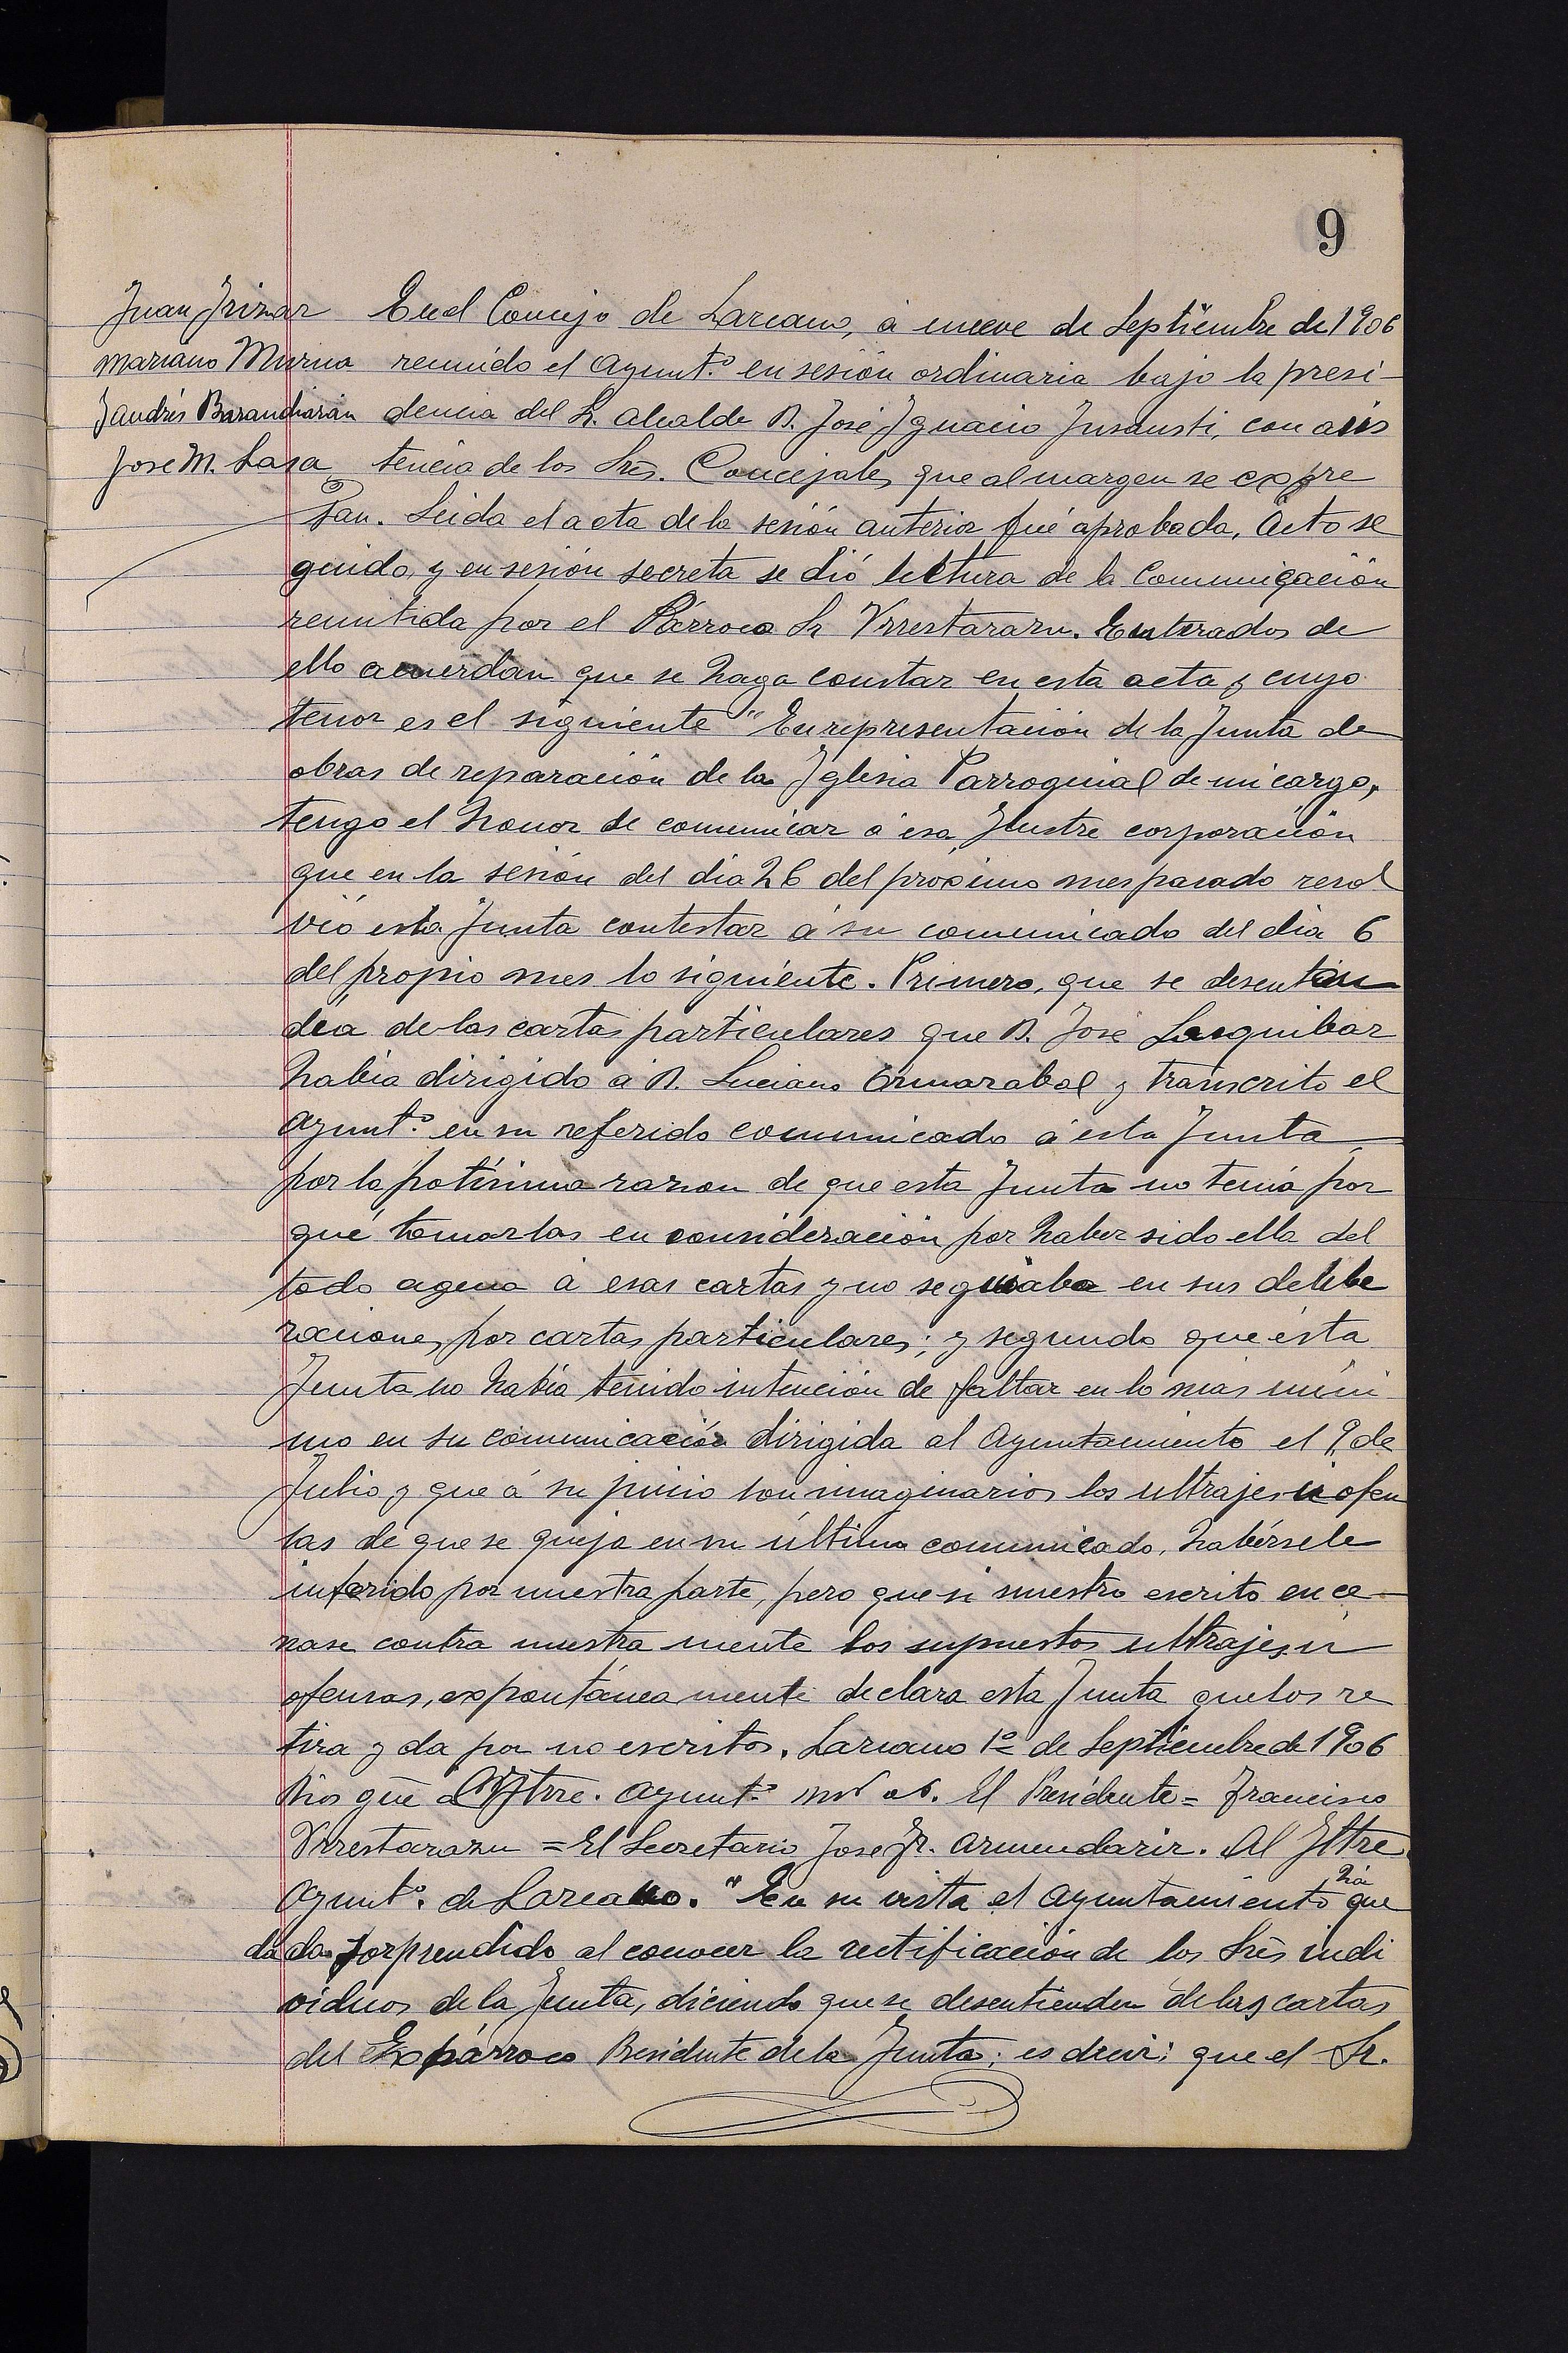 9
Juan Irizar
Mariano Murua
J Andrés Barandiarán
Jose M. Lasa
En el Concejo de Lazcano, á nueve de Septiembre de 1906
reunido el Ayunt.º en sesión ordinaria bajo la presi-
dencia del Sr. Alcalde D. José Ignacio Insausti, con asis
tencia de los Srēs. Concejales que al margen se expre
san. Leida el acta de la sesión anterior fué aprobada. Acto se
guido, y en sesión secreta se dió lectura de la Comunicación
remitida por el Párroco Sr Urrestarazu. Enterados de
ello acuerdan que se haga constar en esta acta y cuyo
tenor es el siguiente "En representación de la Junta de
obras de reparación de la Iglesia Parroquial de mi cargo,
tengo el honor de comunicar á esa Ilustre corporación
que en la sesión del dia 26 del proximo mes pasado resol
vió esta Junta contestar á su comunicado del dia 6
del propio mes lo siguiente. Primero, que se desenten
dia de las cartas particulares que D. José Lasquibar
habia dirigido á D. Luciano Ormazabal y transcrito el
Ayunt.º en su referido comunicado á esta Junta
por la potísima razon de que esta Junta no tenía por
qué tomarlas en consideración por haber sido ella del
todo agena á esas cartas y no se guiaba en sus delibe
raciones por cartas particulares; y segundo que ésta
Junta no había tenido intención de faltar en lo mas míni
mo en su comunicación dirigida al Ayuntamiento el 9 de
Julio y que á su juicio son imaginarios los ultrajes ú ofen
sas de que se queja en su último comunicado, habérsele
inferido por nuestra parte, pero que si nuestro escrito ence-
rrase contra nuestra mente los supuestos ultrajes ú
ofensas, expontáneamente declara esta Junta que los re
tira y da por no escritos. Lazcano 1º de Septiembre de 1906
Dios gūe á Iltre. Ayunt.º ms as. El Presidente = Francisco
Urrestarazu = El Secretario José Jn. Armendariz. Al Iltre
Ayunt.º de Lazcano. "En su vista el Ayuntamiento há que
dado sorprendido al conocer la rectificación de los Srēs indi
viduos de la Junta, diciendo que se desentienden de las cartas
del Expárroco Presidente de la Junta; es decir; que el Sr.